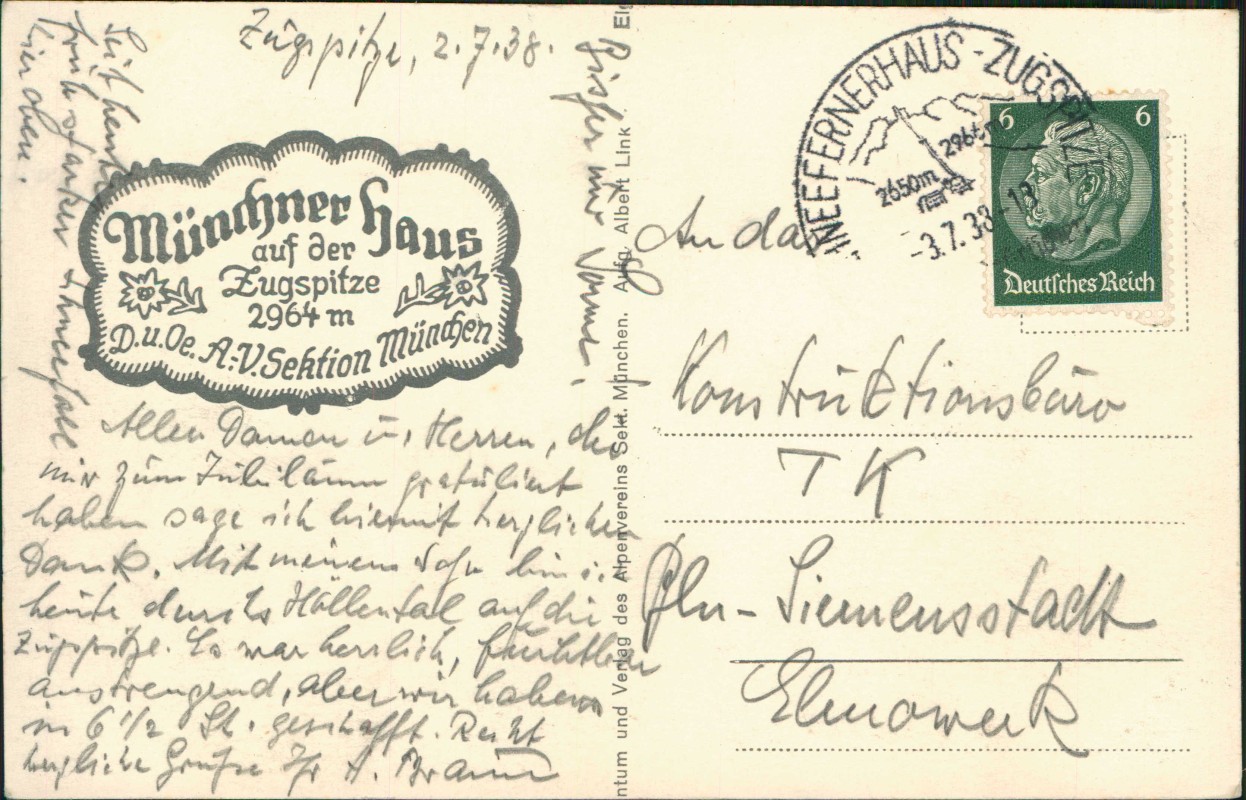 Zugspitze, 2.7.38.
Münchner Haus
auf der
Zugspitze
2964 m
D. u. Oe. A.-V. Sektion München
Allen Damen u. Herren, die
mir zum Jubiläum gratuliert
haben sage ich hiermit herzlichen
Dank. Mit meinem Sohn bin i.
heute durchs Höllental auf die
Zugspitze. Es war herrlich, furchtbar
anstrengend, aber wir haben
in 6 1/2 St. geschafft. Recht
herzliche Grüße Ihr A. Braun
Seit heute
früh starker Schneefall
hier oben.
Bisher nur Sonne.
ntum und Verlag des Alpenvereins Sekt. München. Aufg. Albert Link Eig
NEEFERNERHAUS - ZUGSPITZE
2964m
2650m
-3.7.38-18
6 6
Deutsches Reich
An das
Konstruktionsbüro
TK
Bln - Siemensstadt
Elmowerk